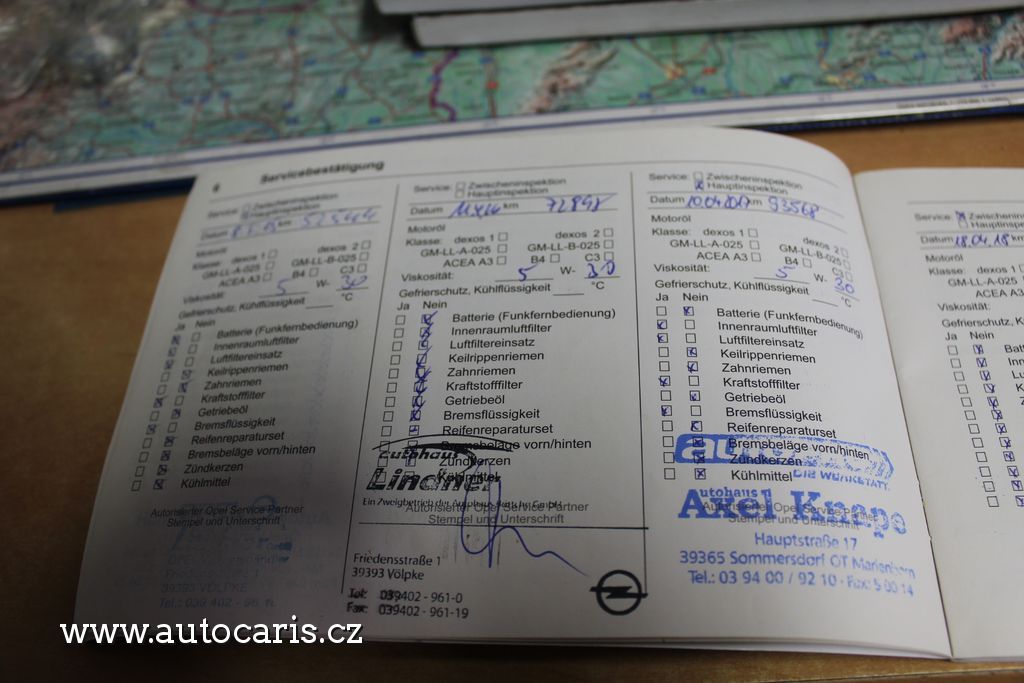 6 Servicebestätigung
Service: Zwischeninspektion
Hauptinspektion
Datum 52544
Motoröl
Klasse: dexos 1 dexos 2
GM-LL-A-025 GM-LL-B-025
ACEA A3 B4 C3
Viskosität: 5 W- 30
Gefrierschutz, Kühlflüssigkeit °C
Ja Nein
Batterie (Funkfernbedienung)
Innenraumluftfilter
Luftfiltereinsatz
Keilrippenriemen
Zahnriemen
Kraftstofffilter
Getriebeöl
Bremsflüssigkeit
Reifenreparaturset
Bremsbeläge vorn/hinten
Zündkerzen
Kühlmittel
Autorisierter Opel Service Partner
Stempel und Unterschrift
Service: Zwischeninspektion
Hauptinspektion
Datum km 72898
Motoröl
Klasse: dexos 1 dexos 2
GM-LL-A-025 GM-LL-B-025
ACEA A3 B4 C3
Viskosität: 5 W- 30
Gefrierschutz, Kühlflüssigkeit °C
Ja Nein
Batterie (Funkfernbedienung)
Innenraumluftfilter
Luftfiltereinsatz
Keilrippenriemen
Zahnriemen
Kraftstofffilter
Getriebeöl
Bremsflüssigkeit
Reifenreparaturset
Bremsbeläge vorn/hinten
Zündkerzen
Kühlmittel
Autohaus
Lindner
Autorisierter Opel Service Partner
Stempel und Unterschrift
Friedensstraße 1
39393 Völpke
Tel: 039402 - 961-0
Fax: 039402 - 961-19
Service: Zwischeninspektion
Hauptinspektion
Datum 10.04.2017 km 93568
Motoröl
Klasse: dexos 1 dexos 2
GM-LL-A-025 GM-LL-B-025
ACEA A3 B4 C3
Viskosität: 5 W- 30
Gefrierschutz, Kühlflüssigkeit °C
Ja Nein
Batterie (Funkfernbedienung)
Innenraumluftfilter
Luftfiltereinsatz
Keilrippenriemen
Zahnriemen
Kraftstofffilter
Getriebeöl
Bremsflüssigkeit
Reifenreparaturset
Bremsbeläge vorn/hinten
Zündkerzen
Kühlmittel
DIE WERKSTATT
Autohaus
Axel Knape
Autorisierter Opel Service Partner
Stempel und Unterschrift
Hauptstraße 17
39365 Sommersdorf OT Marienborn
Tel.: 03 94 00 / 92 10 · Fax: 5 00 14
Service: Zwischenin
Hauptinspe
Datum 18.04.18 km
Motoröl
Klasse: dexos 1
GM-LL-A-025
ACEA A3
Viskosität:
Gefrierschutz, K
Ja Nein
www.autocaris.cz